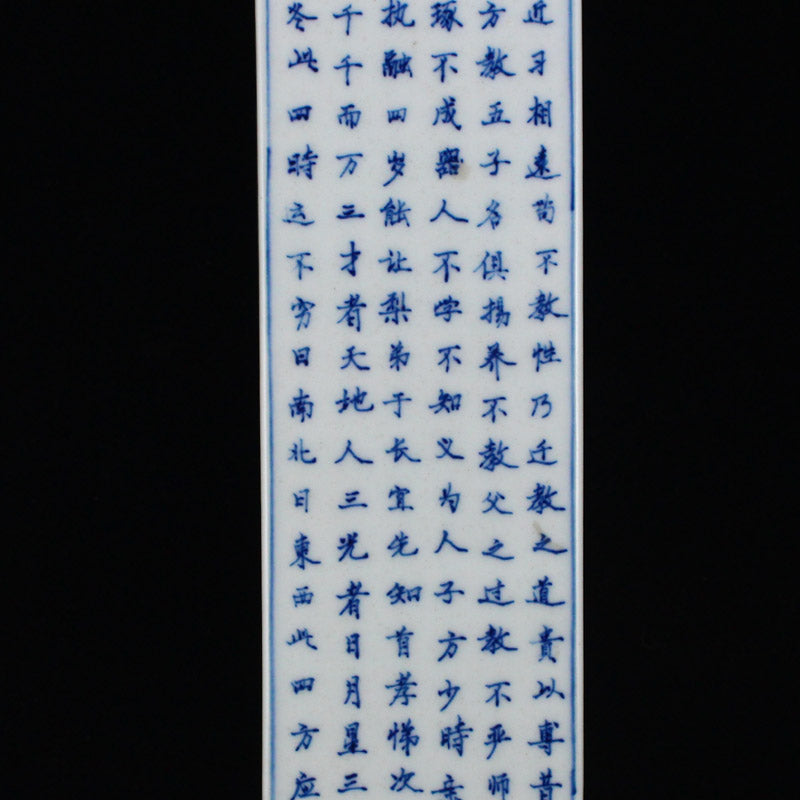 近习相遠苟不教性乃迁教之道貴以専昔
方教五子名俱揚养不教父之过教不严师
琢不成器人不学不知义为人子方少時亲
执融四岁能让梨弟于长宜先知首孝悌次
千千而万三才者天地人三光者日月星三
冬此四時运不穷曰南北曰東西此四方应